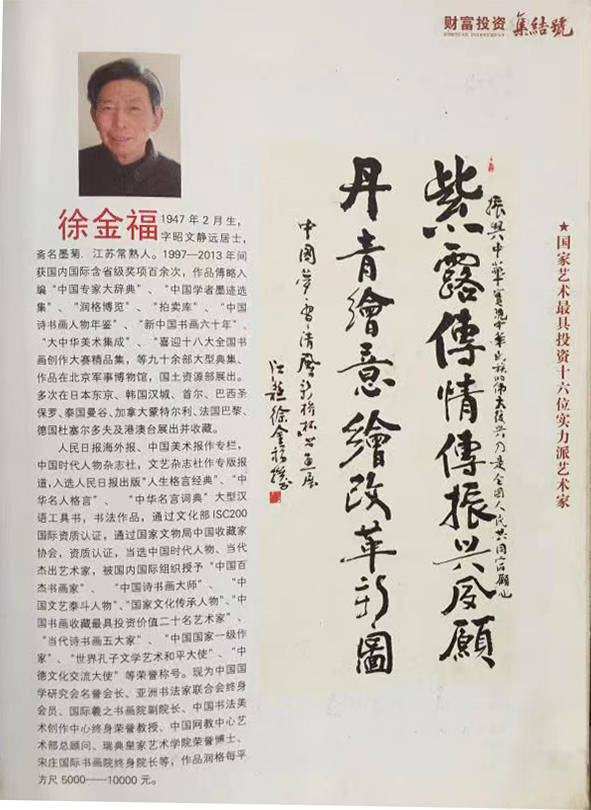 财富投资 集結號
FORTUNE INVESTMENT
徐金福 1947年2月生，
字昭文静远居士，
斋名墨菊．江苏常熟人。1997—2013年间
获国内国际含省级奖项百余次，作品傅略入
编“中国专家大辞典”、“中国学者墨迹选
集”、“润格博览”、“拍卖库”、“中国
诗书画人物年鉴”、“新中国书画六十年”、
“大中华美术集成”、“喜迎十八大全国书
画创作大赛精品集，等九十余部大型典集、
作品在北京军事博物馆，国土资源部展出。
多次在日本东京、韩国汉城、首尔、巴西圣
保罗、泰国曼谷、加拿大蒙特尔利、法国巴黎、
德国杜塞尔多夫及港澳台展出并收藏。
人民日报海外报、中国美术报作专栏，
中国时代人物杂志社，文艺杂志社作专版报
道，入选人民日报出版“人生格言经典”、“中
华名人格言”、“中华名言词典”大型汉
语工具书，书法作品，通过文化部ISC200
国际资质认证，通过国家文物局中国收藏家
协会，资质认证，当选中国时代人物、当代
杰出艺术家，被国内国际组织授予“中国百
杰书画家”、“中国诗书画大师”、“中
国文艺泰斗人物”、“国家文化传承人物”、“中
国书画收藏最具投资价值二十名艺术家”、
“当代诗书画五大家”、“中国国家一级作
家”、“世界孔子文学艺术和平大使”、“中
德文化交流大使”等荣誉称号。现为中国国
学研究会名誉会长、亚洲书法家联合会终身
会员、国际羲之书画院副院长、中国书法美
术创作中心终身荣誉教授、中国网教中心艺
术部总顾问、瑞典皇家艺术学院荣誉博士、
宋庄国际书画院终身院长等，作品润格每平
方尺5000——10000元。
振兴中华實現中华民族的偉大復兴乃是全國人民共同宿願也
紫露傳情傳振兴夙願
丹青繪意繪改革新圖
中國夢
江蘇徐金福
★国家艺术最具投资十六位实力派艺术家